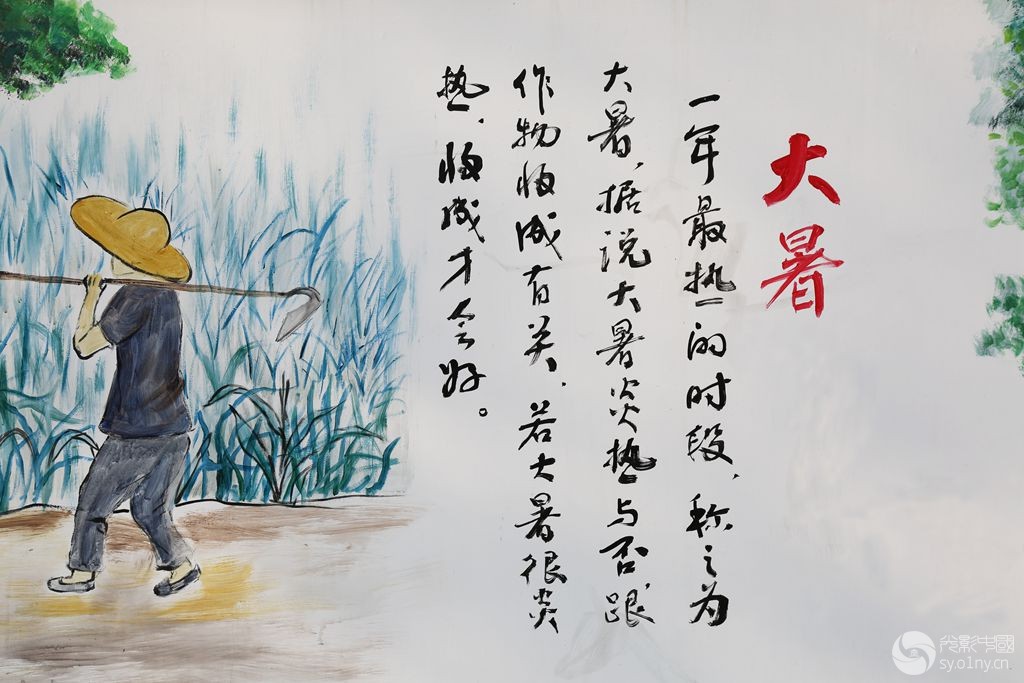 大暑
一年最热的时段，称之为
大暑，据说大暑炎热与否，跟
作物收成有关，若大暑很炎
热，收成才会好。
光影中國
sy.o1ny.cn